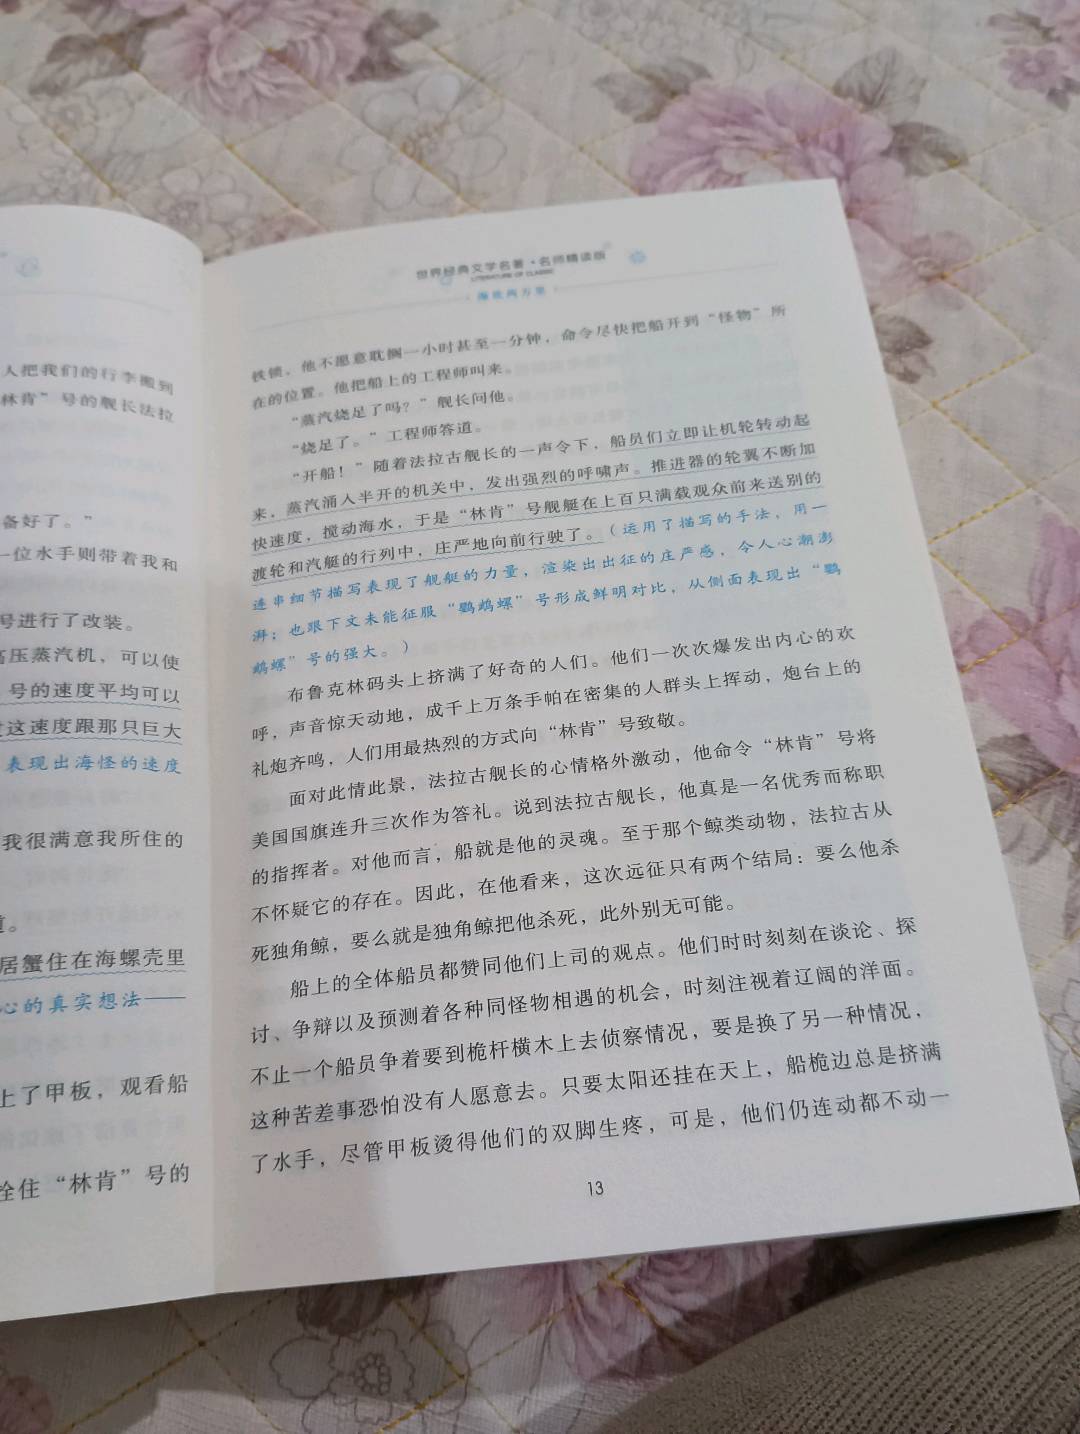 人把我们的行李搬到
林肯”号的舰长法拉
备好了。”
一位水手则带着我和
号进行了改装。
高压蒸汽机，可以使
号的速度平均可以
这速度跟那只巨大
表现出海怪的速度
我很满意我所住的
道。
居蟹住在海螺壳里
心的真实想法——
上了甲板，观看船
拴住“林肯”号的
世界经典文学名著·名师精读版
LITERATURE OF CLASSIC
海底两万里
铁锁。他不愿意耽搁一小时甚至一分钟，命令尽快把船开到“怪物”所
在的位置。他把船上的工程师叫来。
“蒸汽烧足了吗？”舰长问他。
“烧足了。”工程师答道。
“开船！”随着法拉古舰长的一声令下，船员们立即让机轮转动起
来，蒸汽涌入半开的机关中，发出强烈的呼啸声。推进器的轮翼不断加
快速度，搅动海水，于是“林肯”号舰艇在上百只满载观众前来送别的
渡轮和汽艇的行列中，庄严地向前行驶了。（运用了描写的手法，用一
连串细节描写表现了舰艇的力量，渲染出出征的庄严感，令人心潮澎
湃；也跟下文未能征服“鹦鹉螺”号形成鲜明对比，从侧面表现出“鹦
鹉螺”号的强大。）
布鲁克林码头上挤满了好奇的人们。他们一次次爆发出内心的欢
呼，声音惊天动地，成千上万条手帕在密集的人群头上挥动，炮台上的
礼炮齐鸣，人们用最热烈的方式向“林肯”号致敬。
面对此情此景，法拉古舰长的心情格外激动，他命令“林肯”号将
美国国旗连升三次作为答礼。说到法拉古舰长，他真是一名优秀而称职
的指挥者。对他而言，船就是他的灵魂。至于那个鲸类动物，法拉古从
不怀疑它的存在。因此，在他看来，这次远征只有两个结局：要么他杀
死独角鲸，要么就是独角鲸把他杀死，此外别无可能。
船上的全体船员都赞同他们上司的观点。他们时时刻刻在谈论、探
讨、争辩以及预测着各种同怪物相遇的机会，时刻注视着辽阔的洋面。
不止一个船员争着要到桅杆横木上去侦察情况，要是换了另一种情况，
这种苦差事恐怕没有人愿意去。只要太阳还挂在天上，船桅边总是挤满
了水手，尽管甲板烫得他们的双脚生疼，可是，他们仍连动都不动一
13